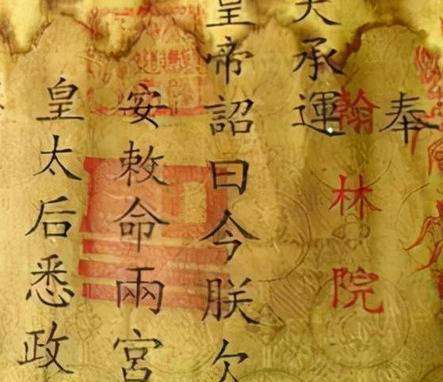 奉
翰林院
天承運
皇帝詔曰今朕欠
安敕命兩宮
皇太后悉政